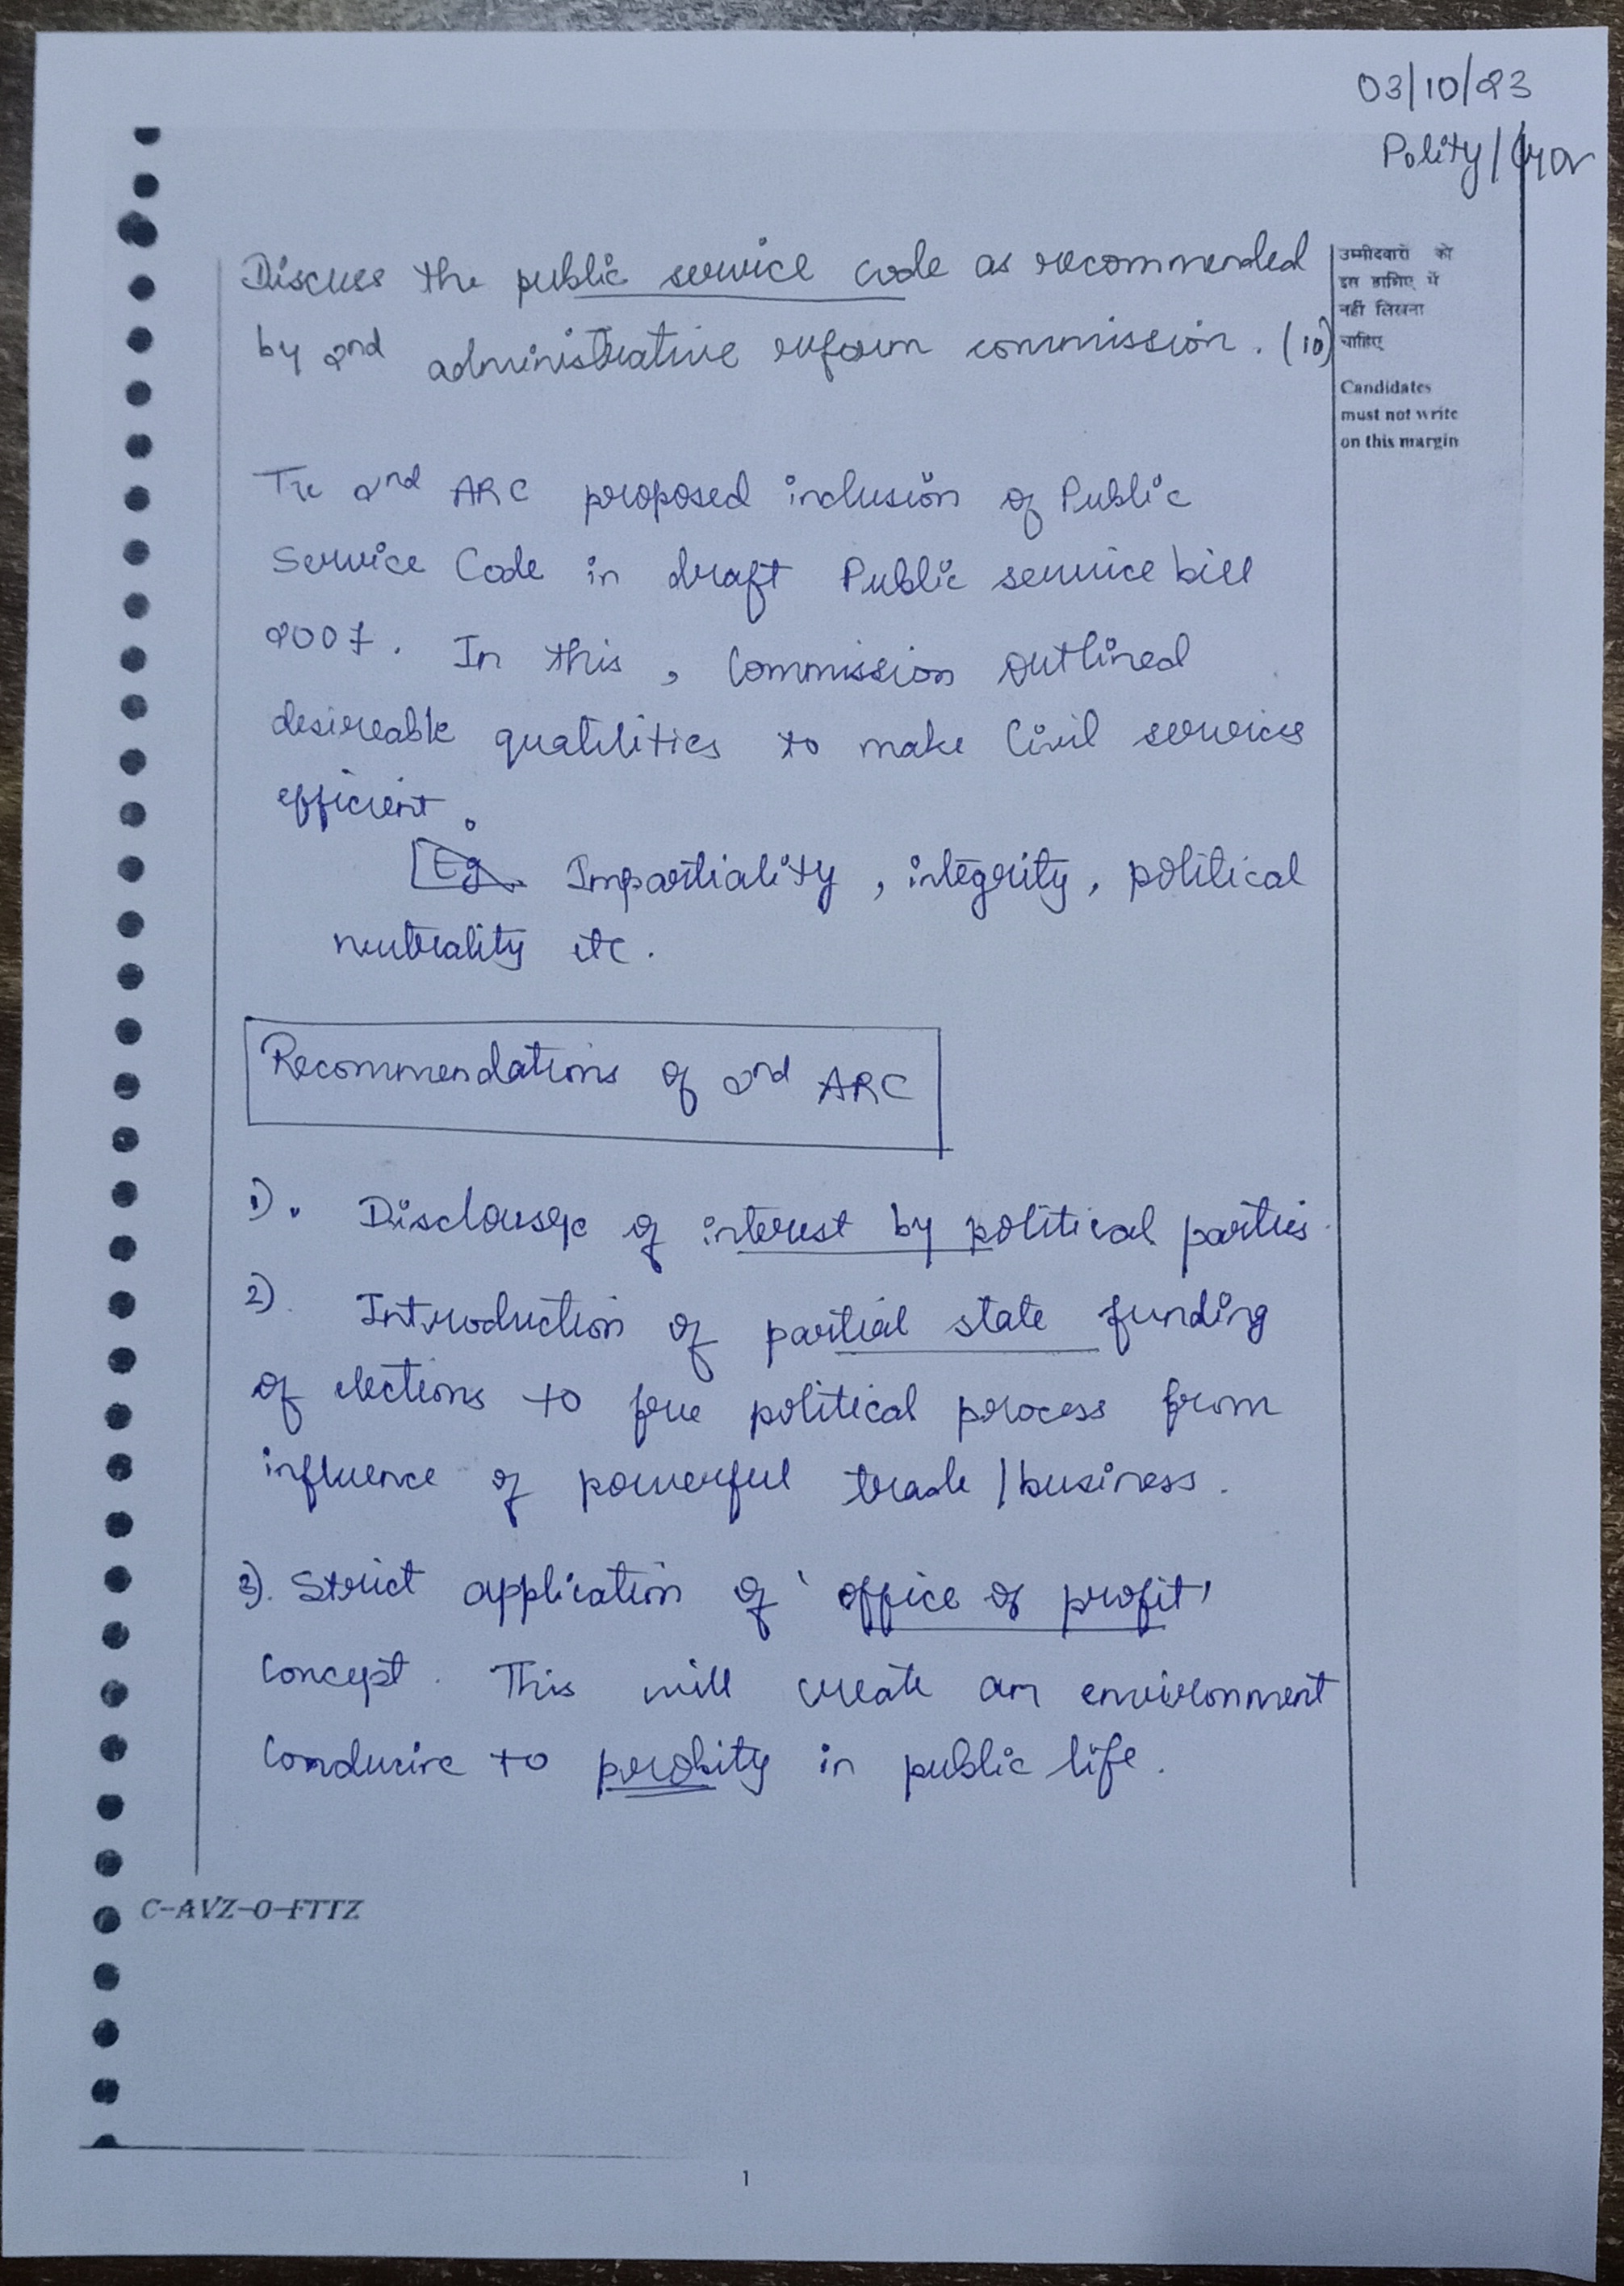 03/10/23
Polity/Gov
Discuss the public service code as recommended
by 2nd administrative reform commission. (10)
उम्मीदवारों को
इस हाशिए में
नहीं लिखना
चाहिए
Candidates
must not write
on this margin
The 2nd ARC proposed inclusion of Public
Service Code in draft Public service bill
2007. In this, Commission outlined
desireable quatilities to make Civil services
efficient.
Eg Impartiality, integrity, political
neutrality etc.
Recommendations of 2nd ARC
1). Disclousge of interest by political parties.
2). Introduction of partial state funding
of elections to free political process from
influence of powerful trade/business.
3). Strict application of 'office of profit'
concept. This will create an environment
conducive to probity in public life.
C-AVZ-O-FTTZ
1